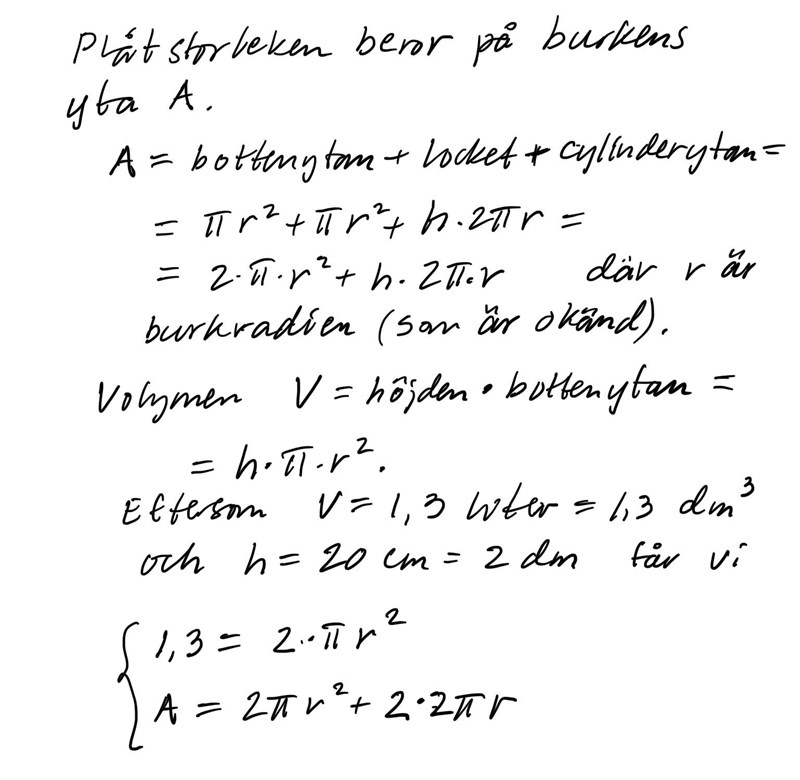 Plåtstorleken beror på burkens
yta A.
A = bottenytan + locket + cylinderytan =
= πr² + πr² + h·2πr =
= 2·π·r² + h·2π·r där r är
burkradien (som är okänd).
Volymen V = höjden · bottenytan =
= h·π·r².
Eftersom V = 1,3 liter = 1,3 dm³
och h = 20 cm = 2 dm får vi
{ 1,3 = 2··πr²
A = 2πr² + 2·2πr